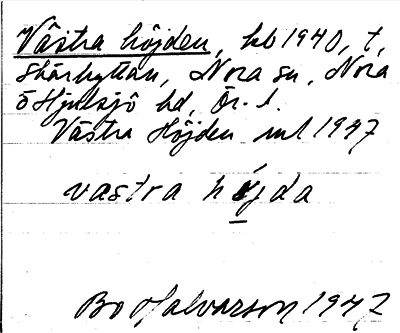 Västra höjden, hb 1940, t,
Skärhyttan, Nora sn, Nora
o Hjulsjö hd, Ör. l.
Västra Höjden ml 1947
vastra höjda
Bo Halvarson 1947